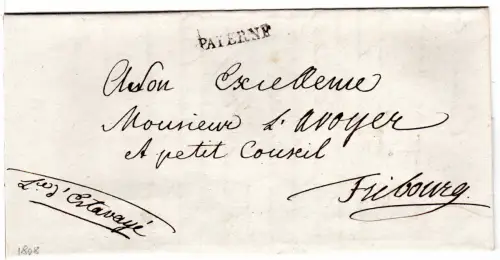 PAYERNE
A Son Excellence
Monsieur L'avoyer
et petit Conseil
Fribourg.
d'Estavayé
1808